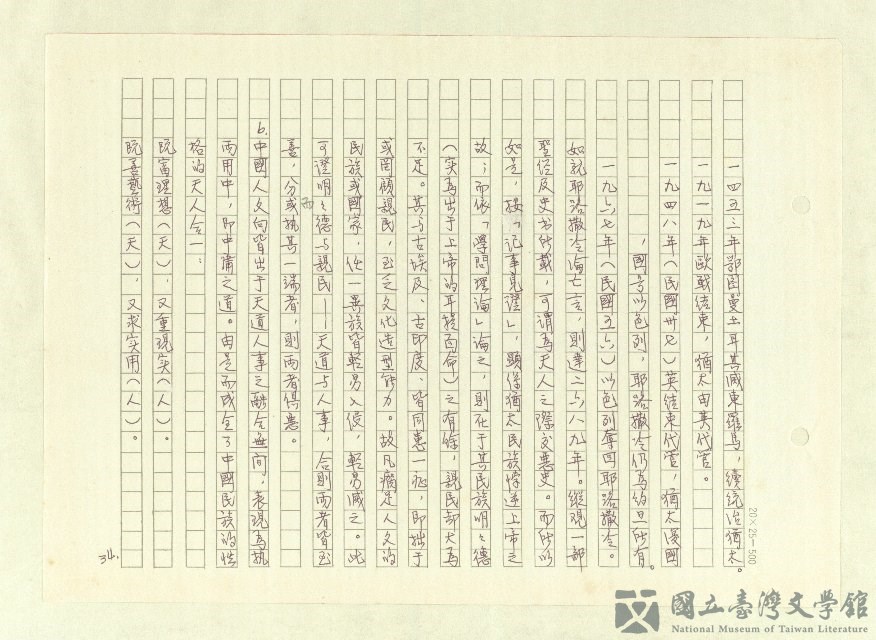 一四五三年鄂圖曼土耳其滅東羅馬，續統治猶太。
一九一九年歐戰結束，猶太由英代管。
一九四八年（民國卅七）英結束代管，猶太復國
，國号以色列，耶路撒冷仍為約旦所有。
一九六七年（民國五六）以色列奪回耶路撒冷。
如就耶路撒冷淪亡言，則達二六八九年。縱現一部
聖経及史書所載，可謂為天人之際交惡史。而所以
如是，按「記事見證」，顯係猶太民族悖逆上帝之
故；而依「學問理論」論之，則在于其民族明々德
（实為出于上帝的耳提面命）之有餘，親民卻大為
不足。其与古埃及、古印度、皆同患一症，即拙于
或罔顧親民，致乏文化造型能力。故凡瘸足人文的
民族或國家，任一異族皆輕易入侵，輕易滅之。此
可證明々德与親民——天道与人事，合則而者皆至
善，分或執其一端者，則兩者俱惡。
而
6.中國人文向皆出于天道人事之融合無間，表現為執
兩用中，即中庸之道。由是而成全了中國民族的性
格的天人合一：
既富理想（天），又重現实（人）。
既善藝術（天），又求实用（人）。
34.
20×25=500
國立臺灣文学館
National Museum of Taiwan Literature